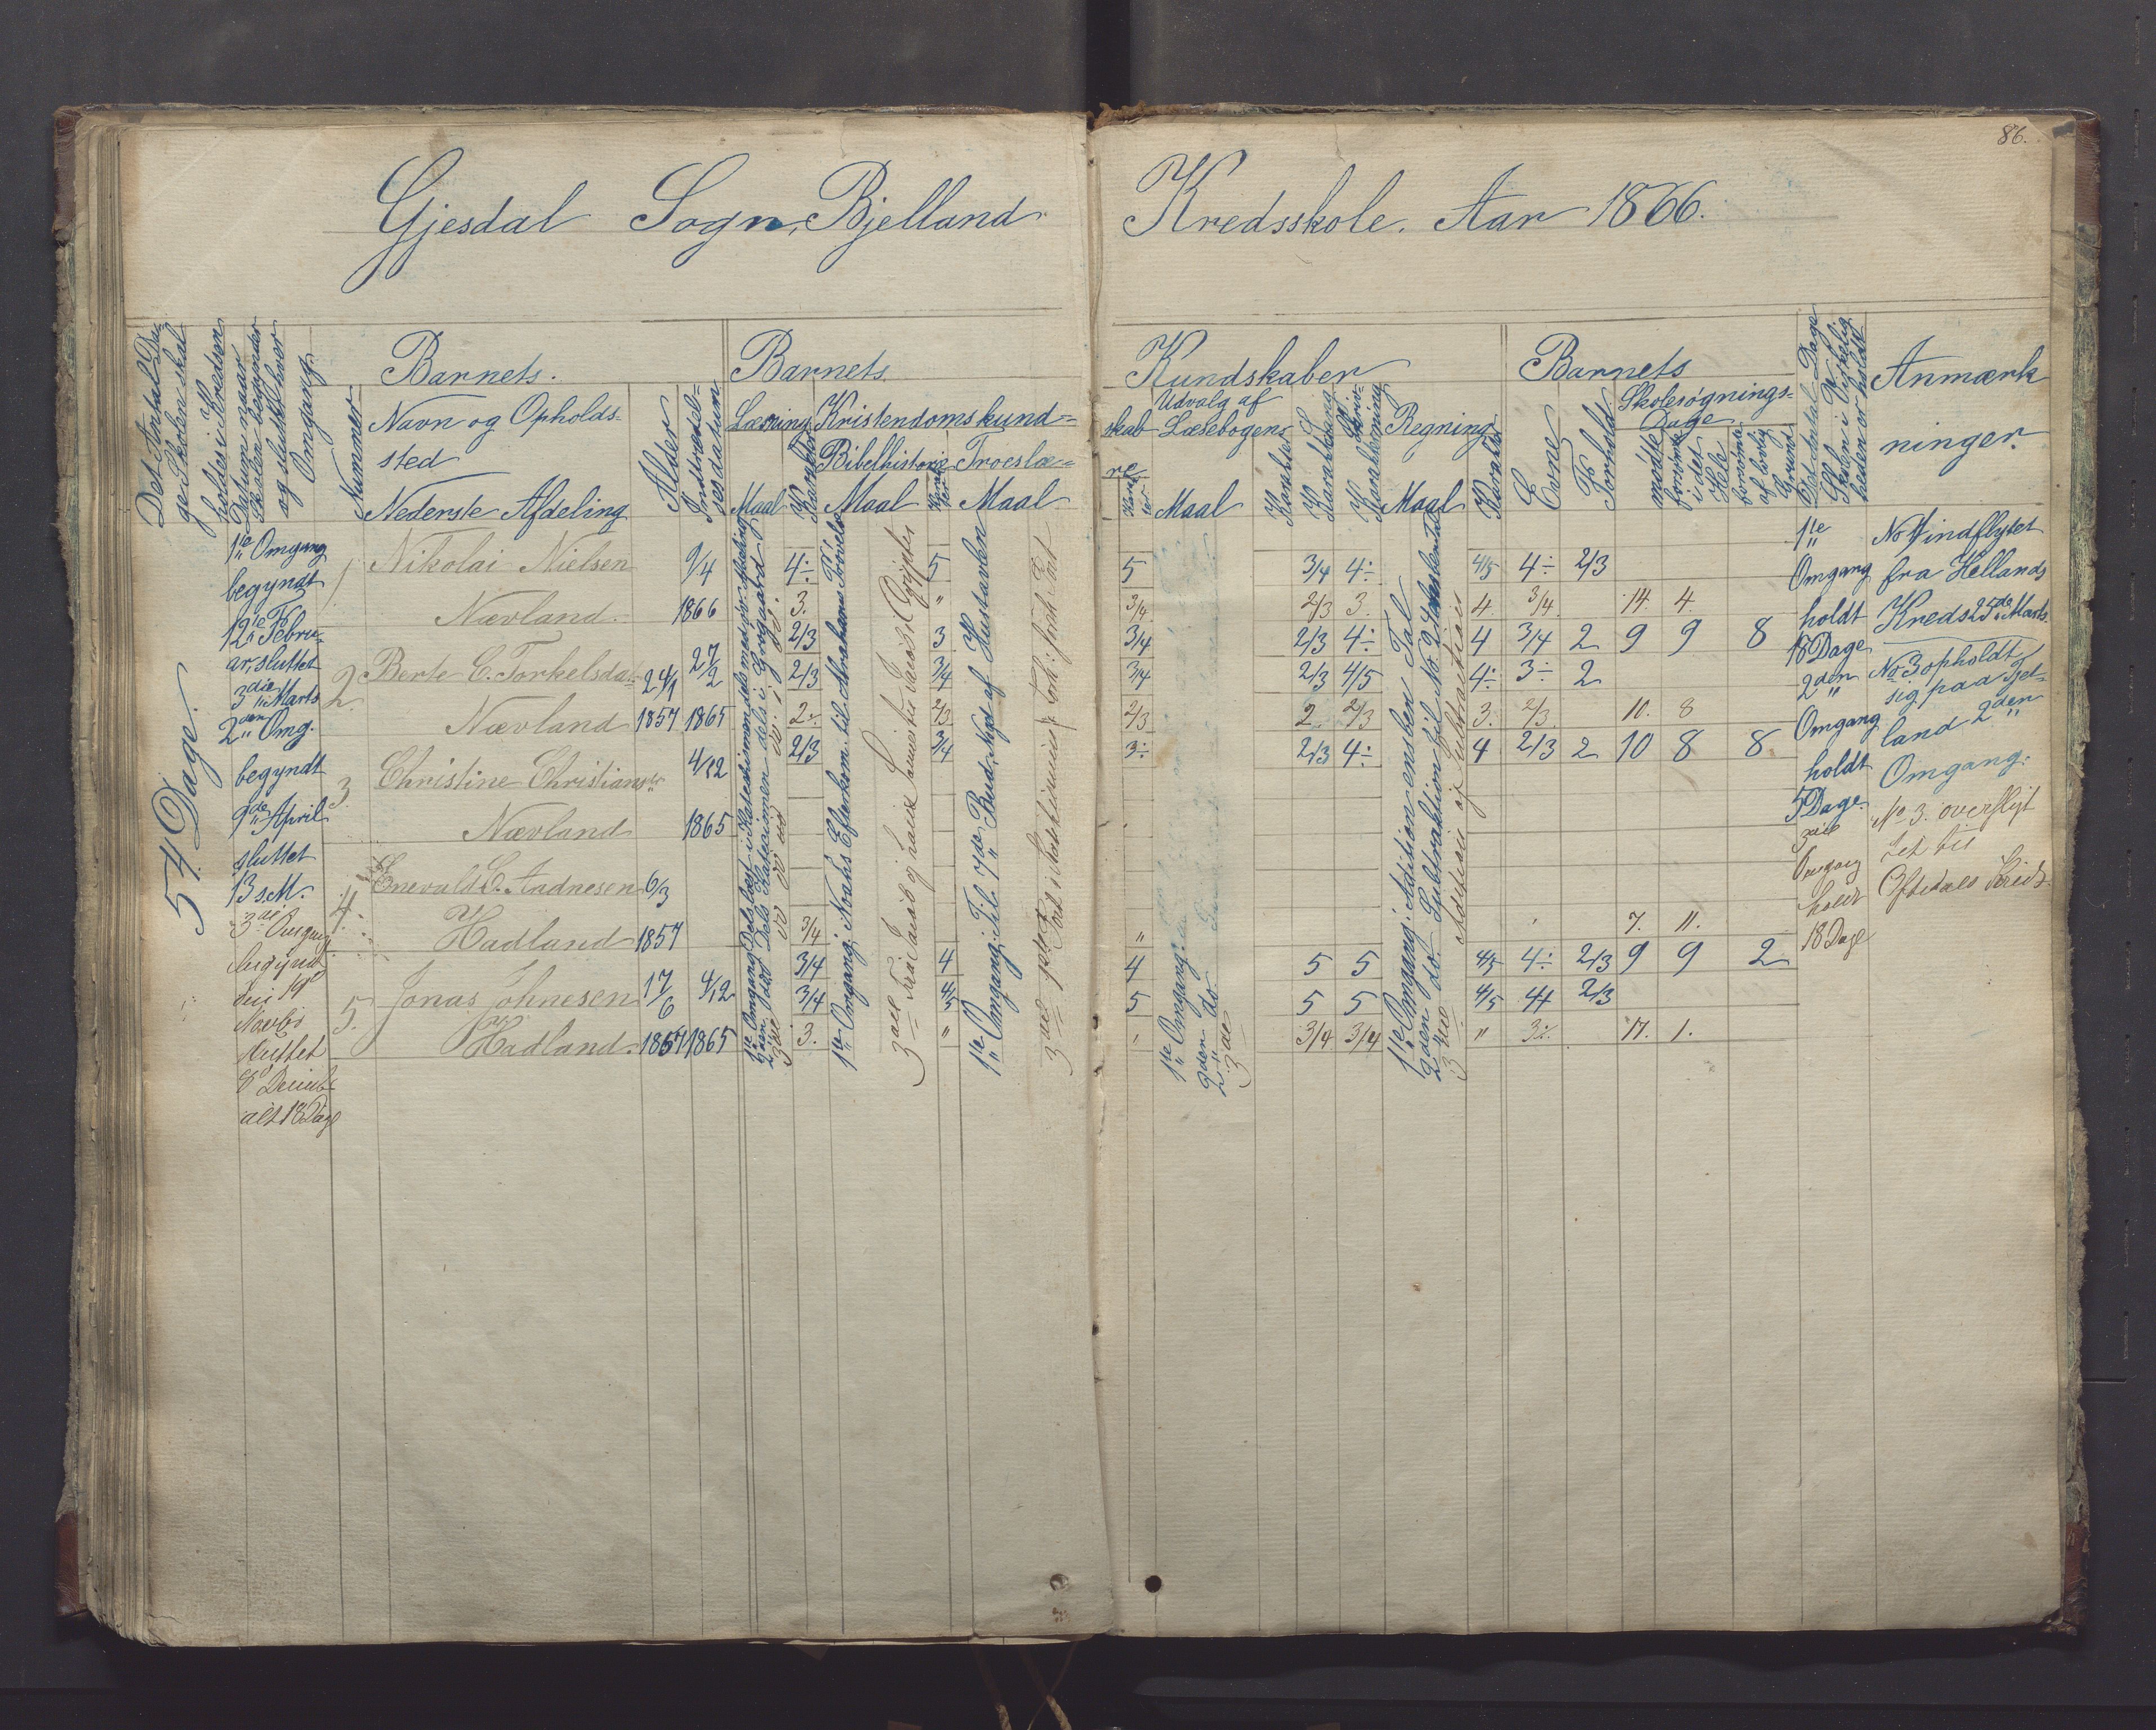 86.
Gjesdal Sogn, Bjelland Kredsskole. Aar 1866.
Det Antal Da-
ge Skolen skal
holdes i Kredsen
Datum naar
Skolen begynder
og slutter hver
Omgang.
Nummer
Barnets.
Navn og Opholds-
sted
Nederste Afdeling
Alder
Indtrædel-
sesdatum
Barnets
Kundskaber
Læsning
Maal
Karakter
Kristendomskund=
skab
Bibelhistorie
Maal
Karak-
ter
Troeslæ=
re
Maal
Karak-
ter
Udvalg af
Læsebogen
Maal
Karakter
Sang
Karakter
Skriv-
ning
Karakter
Regning
Maal
Karakter
Barnets
Evne
Forhold
Skolesøgnings-
Dage
mødte
forsømte
i det
Hele
forsømte
af lovlig
Grund
Det Antal Dage
Skolen i Virkelig
heden er holdt
Anmærk
ninger.
54 Dage.
1ste Omgang
begyndt
12te Febru-
ar, sluttet
3die Marts
2den Omg.
begyndt
9de April
sluttet
13 s.M.
3die Omgang
begyndt
den 19de
Novbr
sluttet
8de Decembr
alt 18 Dage
1 Nikolai Nielsen 9/4
Nævland. 1866
2. Berte E. Torkelsdat. 24/1 27/2
Nævland 1857 1865
3. Christine Christiansdr 4/12
Nævland 1865
4. Enevald L. Andnesen 6/3
Hadland 1857
5. Jonas Johnesen 17/6 4/12
Hadland. 1857 1865
1ste Omgang: Noahs Efterkom. til Abrahams Prøvelse
1ste Omgang: Til 7de Bud, Nyt af Hustavlen
1ste Omgang:
2den do
3die
1ste Omgang: Addition ensben. Tal
2den do Subtraktion til No 24
3die Addition og Subtraction
4÷ 5 5 3/4 4÷ 4/5 4÷ 2/3
3. " 3/4 2/3 3. 4. 3/4. 14. 4.
2/3 3 3/4 2/3 4÷ 4 3/4 2 9 9 8
2/3 3/4 3/4 2/3 4/5 4÷ 3÷ 2
2÷ 2/3 2/3 2 2/3 3. 2/3 10. 8
2/3 3/4 3÷ 2/3 4÷ 4 2/3 2 10 8 8
3/4 " 7. 11.
3/4 4 4 5 5 4/5 4÷ 2/3 9 9 2
3/4 4/5 5 5 5 4/5 4 2/3
3. " " 3/4 3/4 " 3÷ 17. 1.
1ste
Omgang
holdt
18 Dage
2den
Omgang
holdt
5 Dage.
3die
Omgang
holdt
18 Dage
No 4 indflyttet
fra Hellands
Kreds 25de Marts.
No 3 opholdt
sig paa Tjet-
land 2den
Omgang.
No 3. overflyt
tet til
Oftedals Kreds.